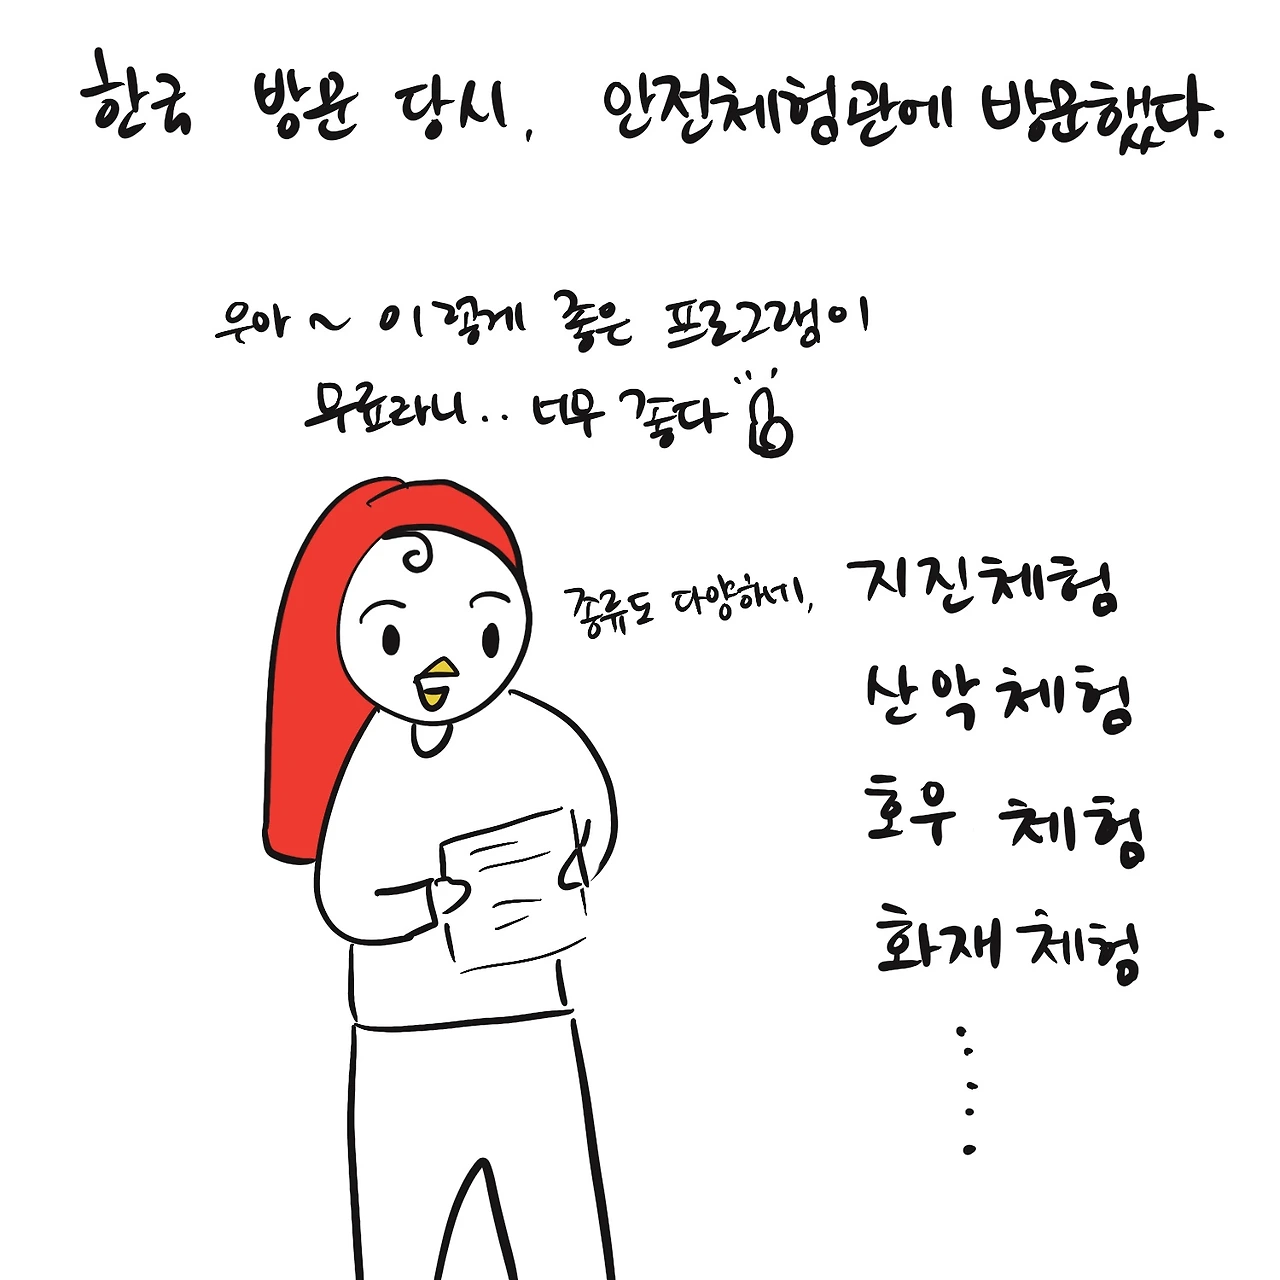 한국 방문 당시, 안전체험관에 방문했다.
우아~ 이렇게 좋은 프로그램이
무료라니.. 너무 좋다
종류도 다양하네,
지진체험
산악체험
호우 체험
화재체험